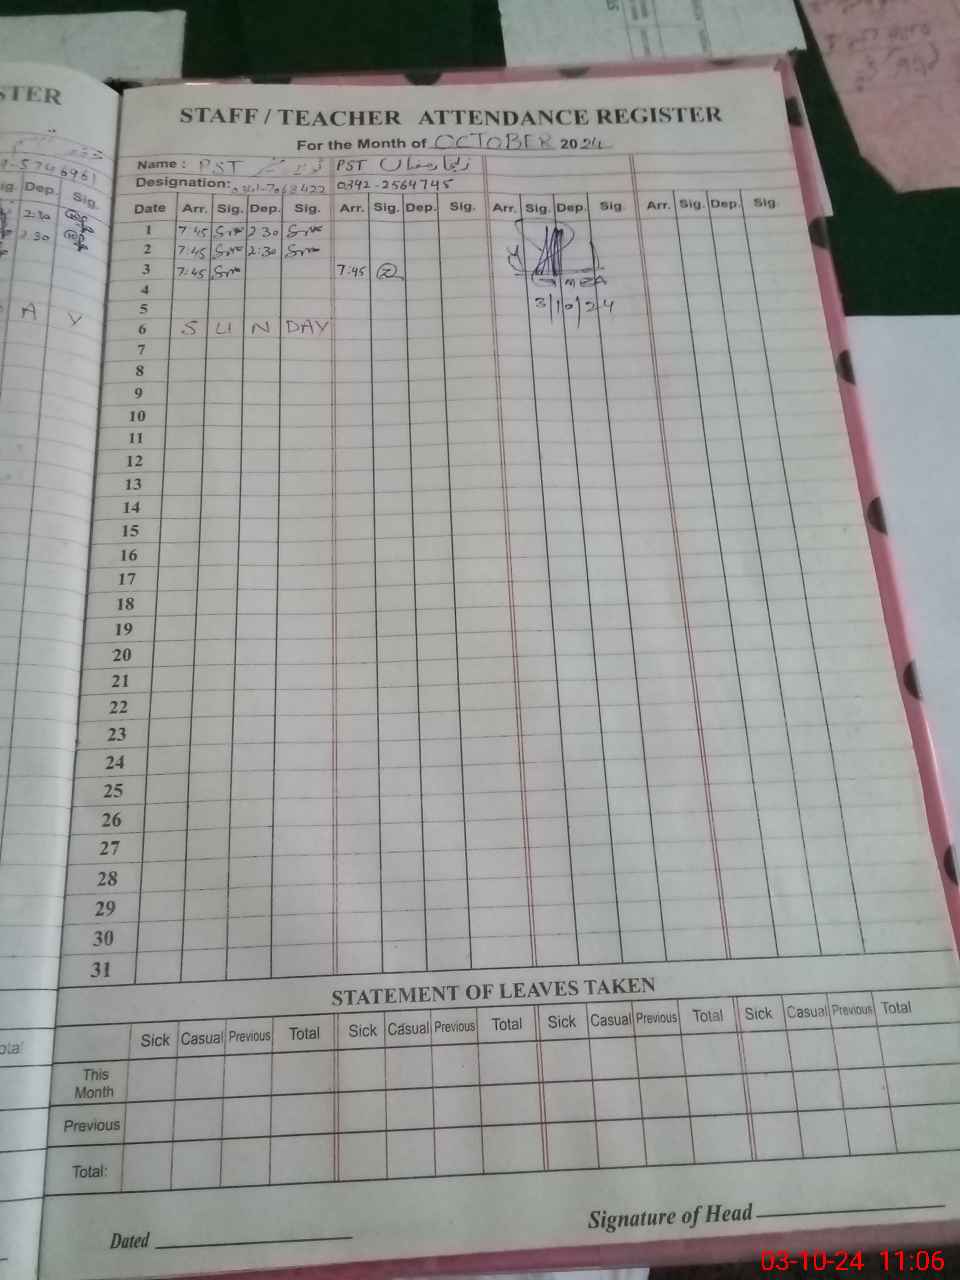 STER
STAFF / TEACHER ATTENDANCE REGISTER
For the Month of OCTOBER 2024
Name : PST PST
Designation: 0342-2564745
6961
Sig. Dep. Sig.
Date Arr. Sig. Dep. Sig. Arr. Sig. Dep. Sig. Arr. Sig. Dep. Sig. Arr. Sig. Dep. Sig.
2:30
1 7:45 2 30
2:30
2 7:45 2:30
3 7:45 7:45
4
3/10/24
5
A Y
6 S U N DAY
7
8
9
10
11
12
13
14
15
16
17
18
19
20
21
22
23
24
25
26
27
28
29
30
31
STATEMENT OF LEAVES TAKEN
Sick Casual Previous Total Sick Casual Previous Total Sick Casual Previous Total Sick Casual Previous Total
This
Month
Previous
Total:
Dated Signature of Head
03-10-24 11:06